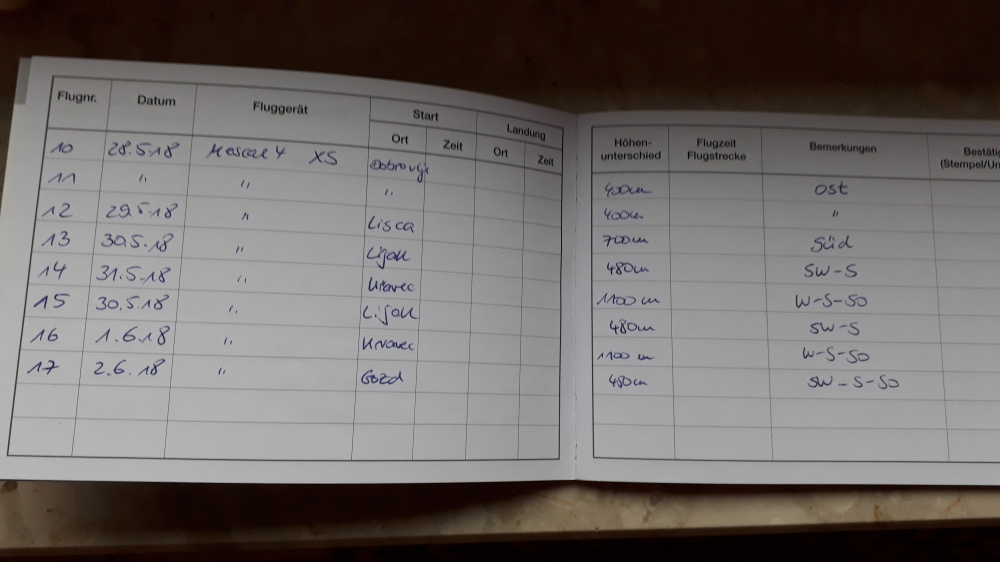 Flugnr. Datum Fluggerät Start Landung
Ort Zeit Ort Zeit
Höhen- Flugzeit Bemerkungen
unterschied Flugstrecke (Stempel/Un
10 28.5.18 Mescal 4 XS Dobrovlje 400m Ost
11 " " " 400m "
12 29.5.18 " Lisca 700m Süd
13 30.5.18 " Lijak 480m SW-S
14 31.5.18 " Krvavec 1100m W-S-SO
15 30.5.18 " Lijak 480m SW-S
16 1.6.18 " Krvavec 1100m W-S-SO
17 2.6.18 " Gozd 480m SW-S-SO